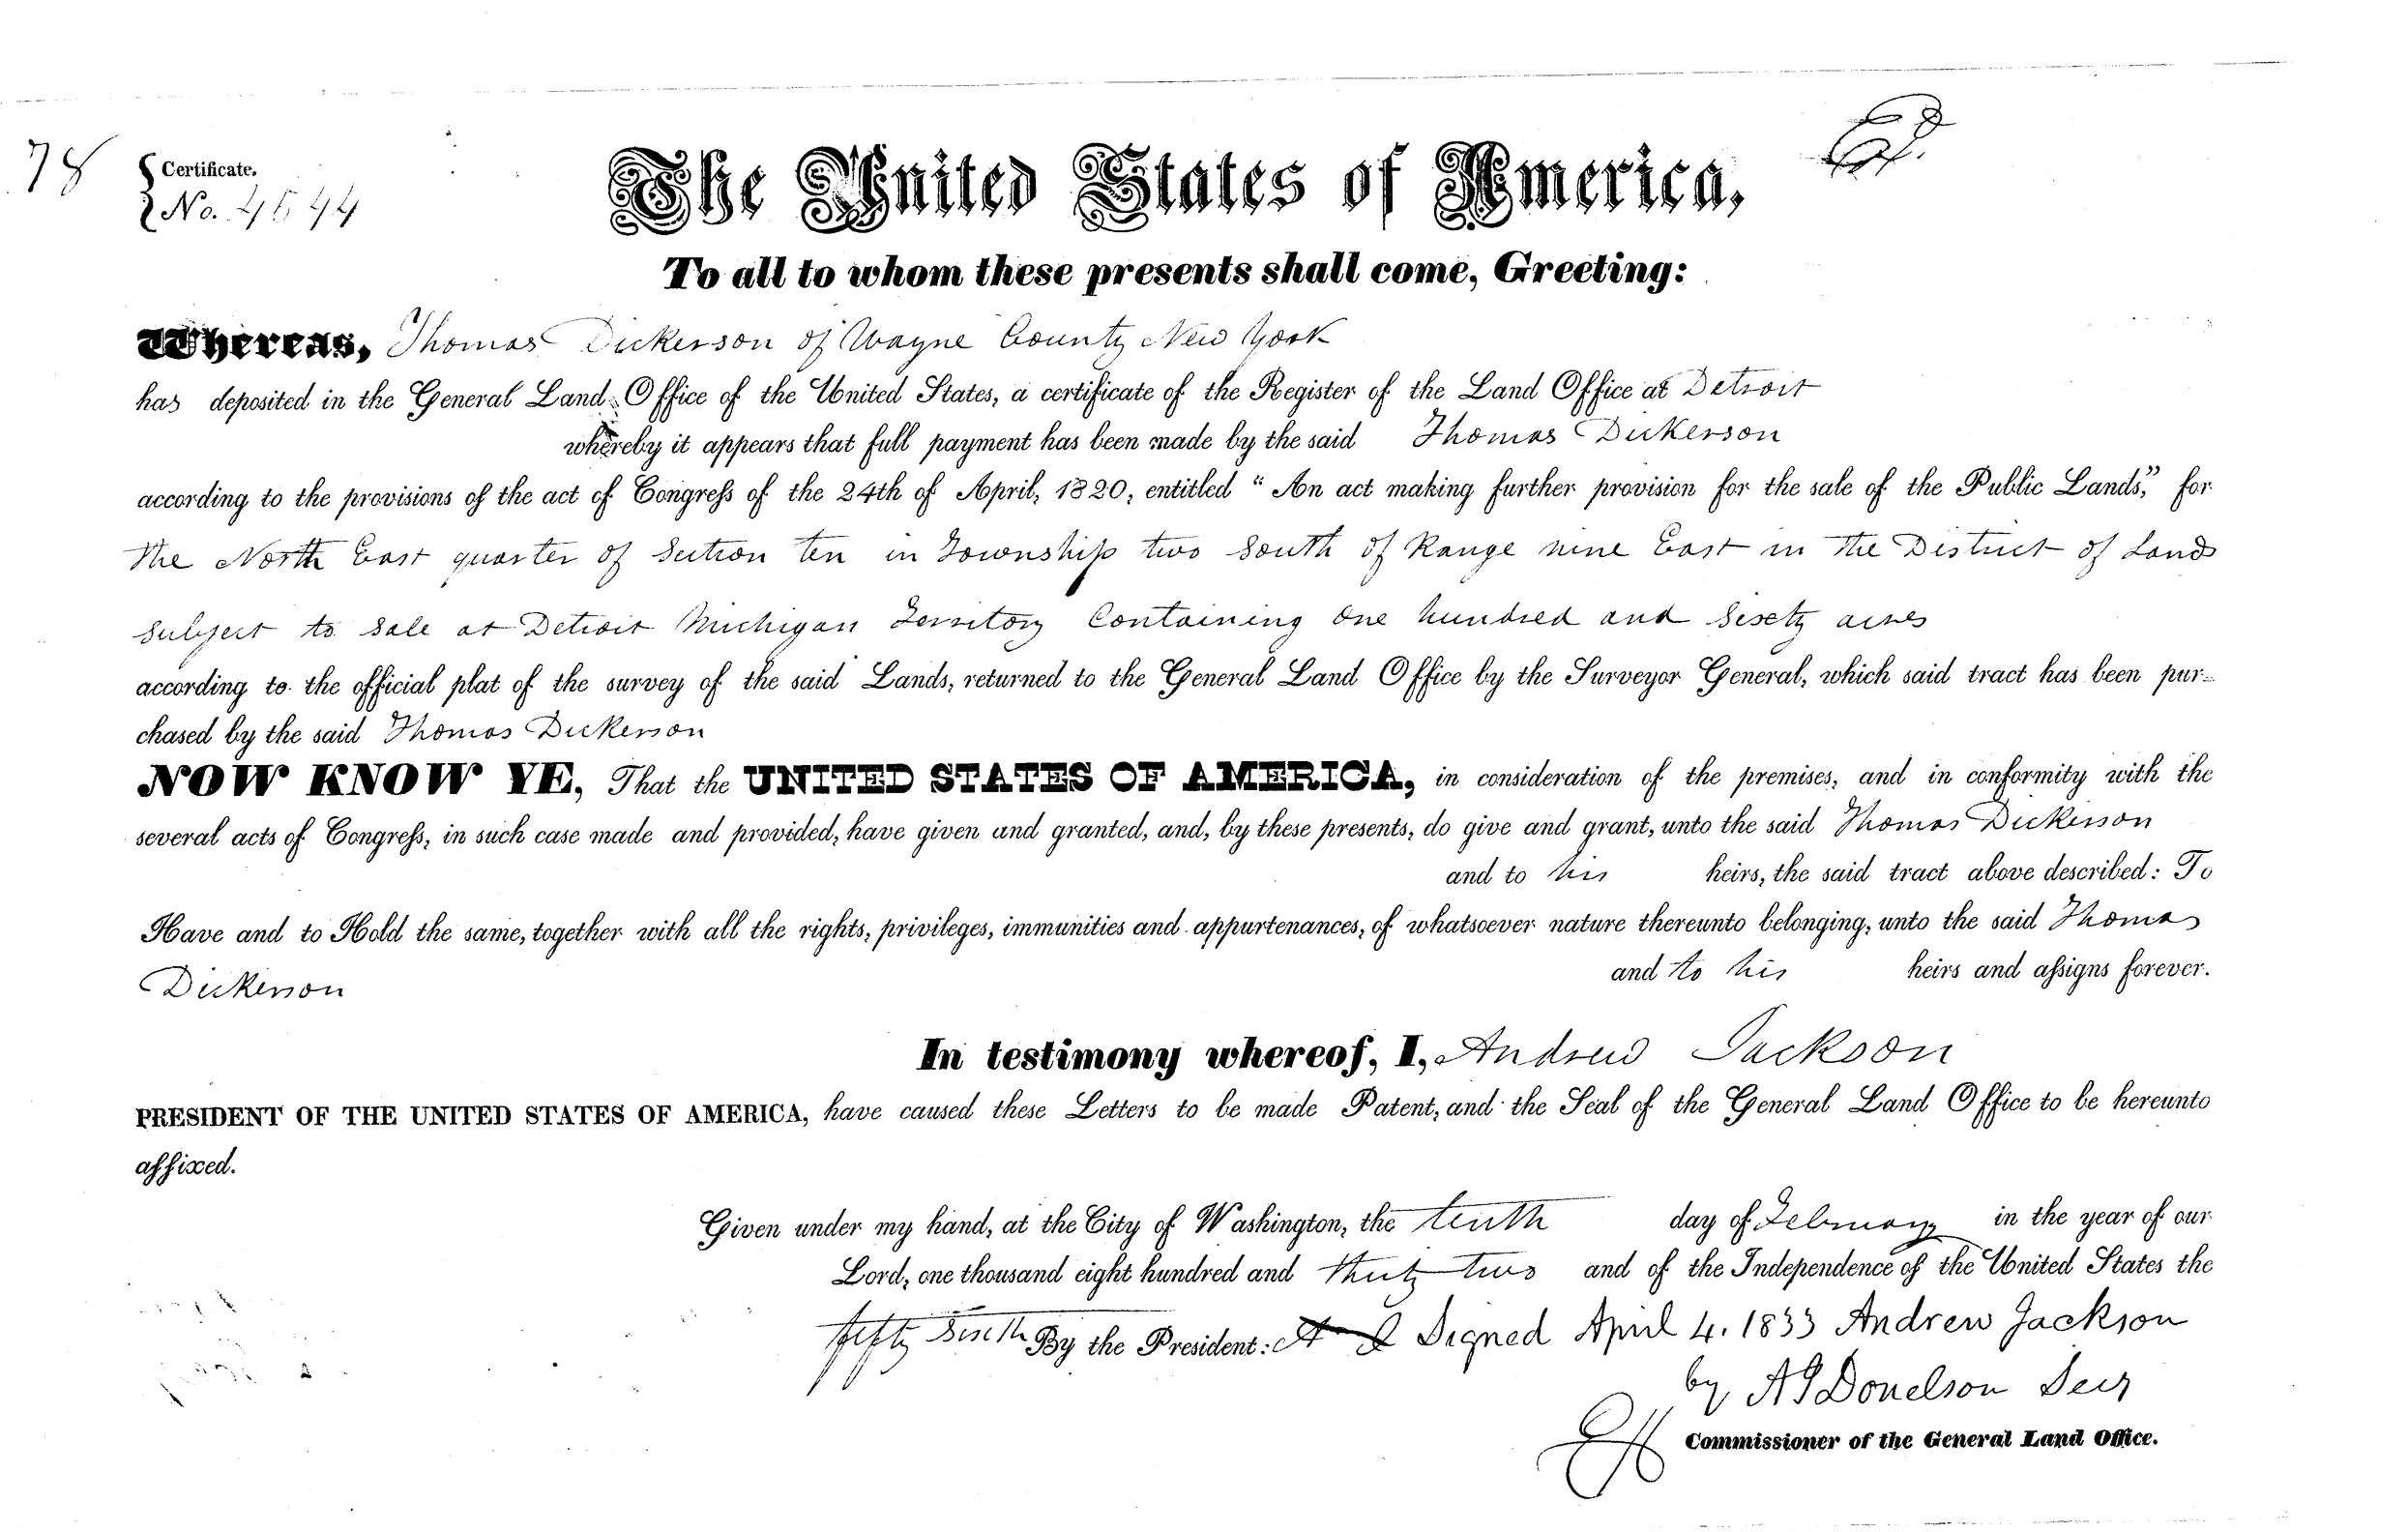 78
Certificate.
No. 4544
The United States of America,
To all to whom these presents shall come, Greeting:
Whereas, Thomas Dickerson of Wayne County New York
has deposited in the General Land Office of the United States, a certificate of the Register of the Land Office at Detroit
whereby it appears that full payment has been made by the said Thomas Dickerson
according to the provisions of the act of Congress of the 24th of April, 1820, entitled "An act making further provision for the sale of the Public Lands," for
the North East quarter of Section ten in Township two South of Range nine East in the District of Lands
subject to sale at Detroit Michigan Territory Containing one hundred and sixty acres
according to the official plat of the survey of the said Lands, returned to the General Land Office by the Surveyor General, which said tract has been pur-
chased by the said Thomas Dickerson
NOW KNOW YE, That the UNITED STATES OF AMERICA, in consideration of the premises, and in conformity with the
several acts of Congress, in such case made and provided, have given and granted, and, by these presents, do give and grant, unto the said Thomas Dickerson
and to his heirs, the said tract above described: To
Have and to Hold the same, together with all the rights, privileges, immunities and appurtenances, of whatsoever nature thereunto belonging, unto the said Thomas
Dickerson and to his heirs and assigns forever.
In testimony whereof, I, Andrew Jackson
PRESIDENT OF THE UNITED STATES OF AMERICA, have caused these Letters to be made Patent, and the Seal of the General Land Office to be hereunto
affixed.
Given under my hand, at the City of Washington, the tenth day of February in the year of our
Lord, one thousand eight hundred and thirty two and of the Independence of the United States the
fifty sixth By the President: Signed April 4. 1833 Andrew Jackson
by A J Donelson Secy
Commissioner of the General Land Office.